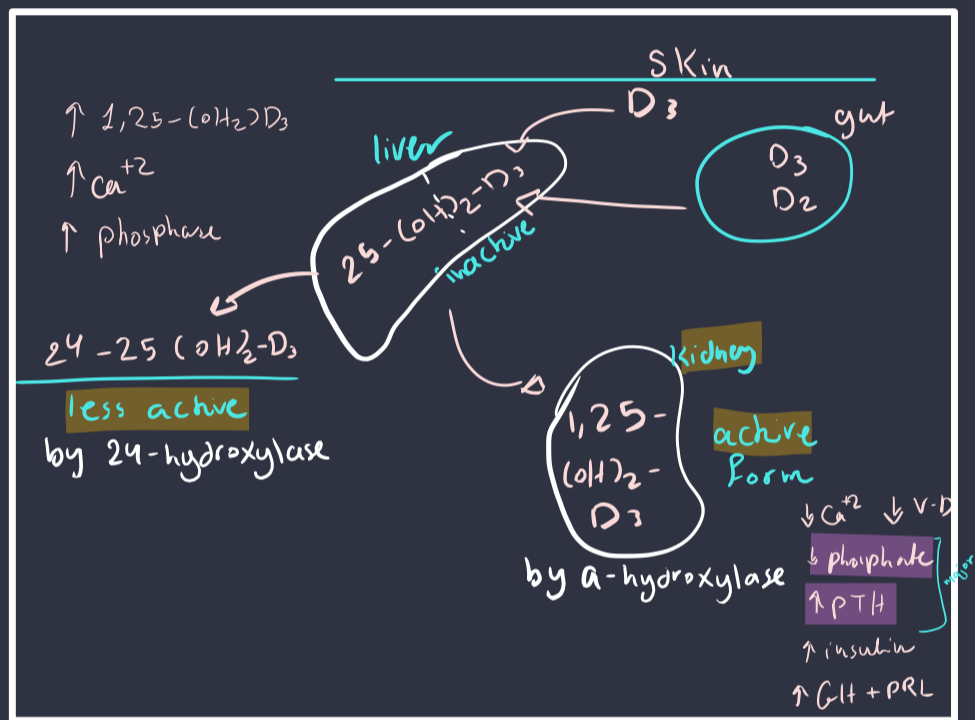 Skin
D3
gut
D3
D2
liver
25-(OH)2-D3
inactive
↑ 1,25-(OH2)D3
↑ Ca+2
↑ phosphase
24-25 (OH)2-D3
less active
by 24-hydroxylase
Kidney
1,25-
(OH)2-
D3
active
form
by a-hydroxylase
↓ Ca+2 ↓ V-D
↓ phosphate
↑ PTH
major
↑ insulin
↑ GH + PRL